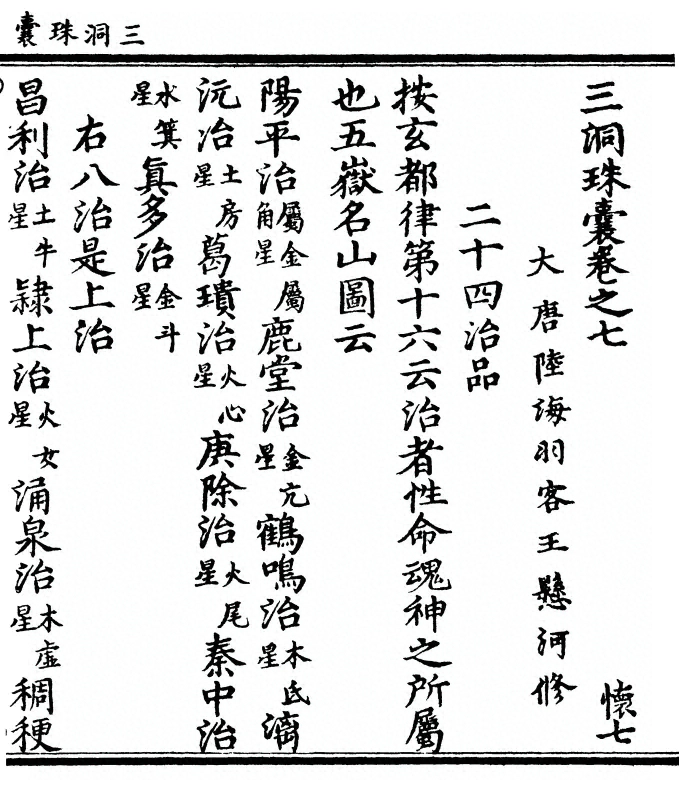 三洞珠囊
三洞珠囊卷之七 懷七
大唐陸海羽客王懸河修
二十四治品
按玄都律第十六云治者性命魂神之所屬
也五嶽名山圖云
陽平治屬金屬角星鹿堂治金亢星鶴鳴治木氐星漓
沅治土房星葛璝治火心星庚除治火尾星秦中治
水箕星眞多治金斗星
右八治是上治
昌利治土牛星隸上治火女星涌泉治木虛星稠稉